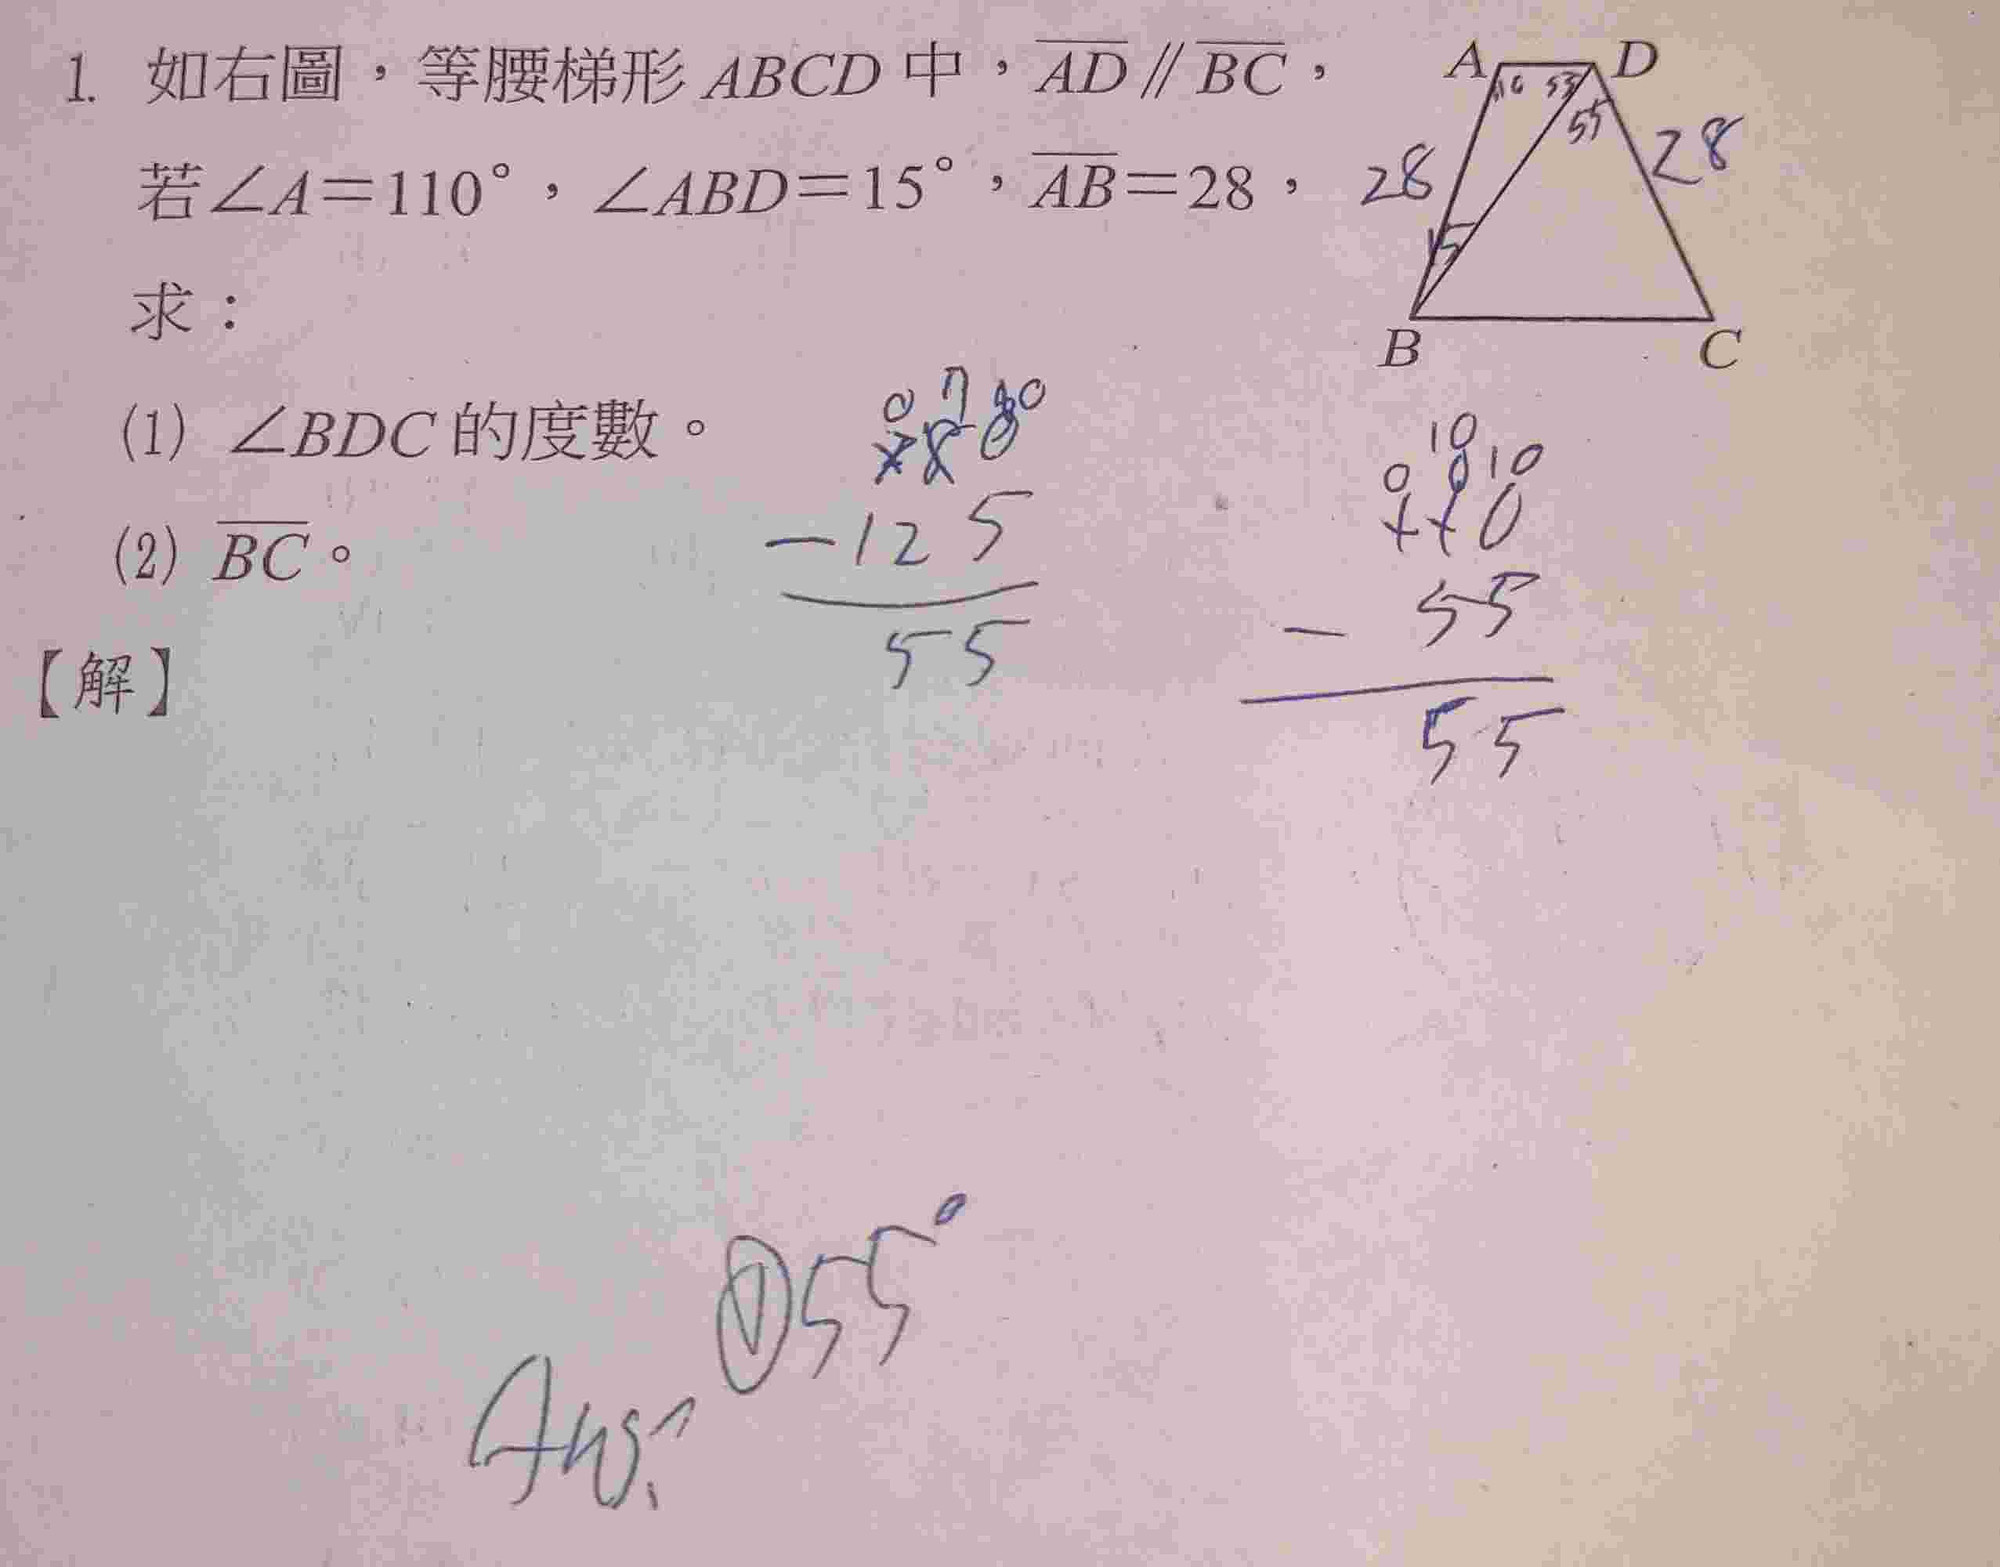 1. 如右圖，等腰梯形 ABCD 中，AD // BC，
若∠A＝110°，∠ABD＝15°，AB＝28，
求：
(1) ∠BDC 的度數。
(2) BC。
【解】
A D
10 55
55
28 28
15
B C
0 7 10
180
－125
55
10
0 0 10
110
－ 55
55
Ans: ①55°